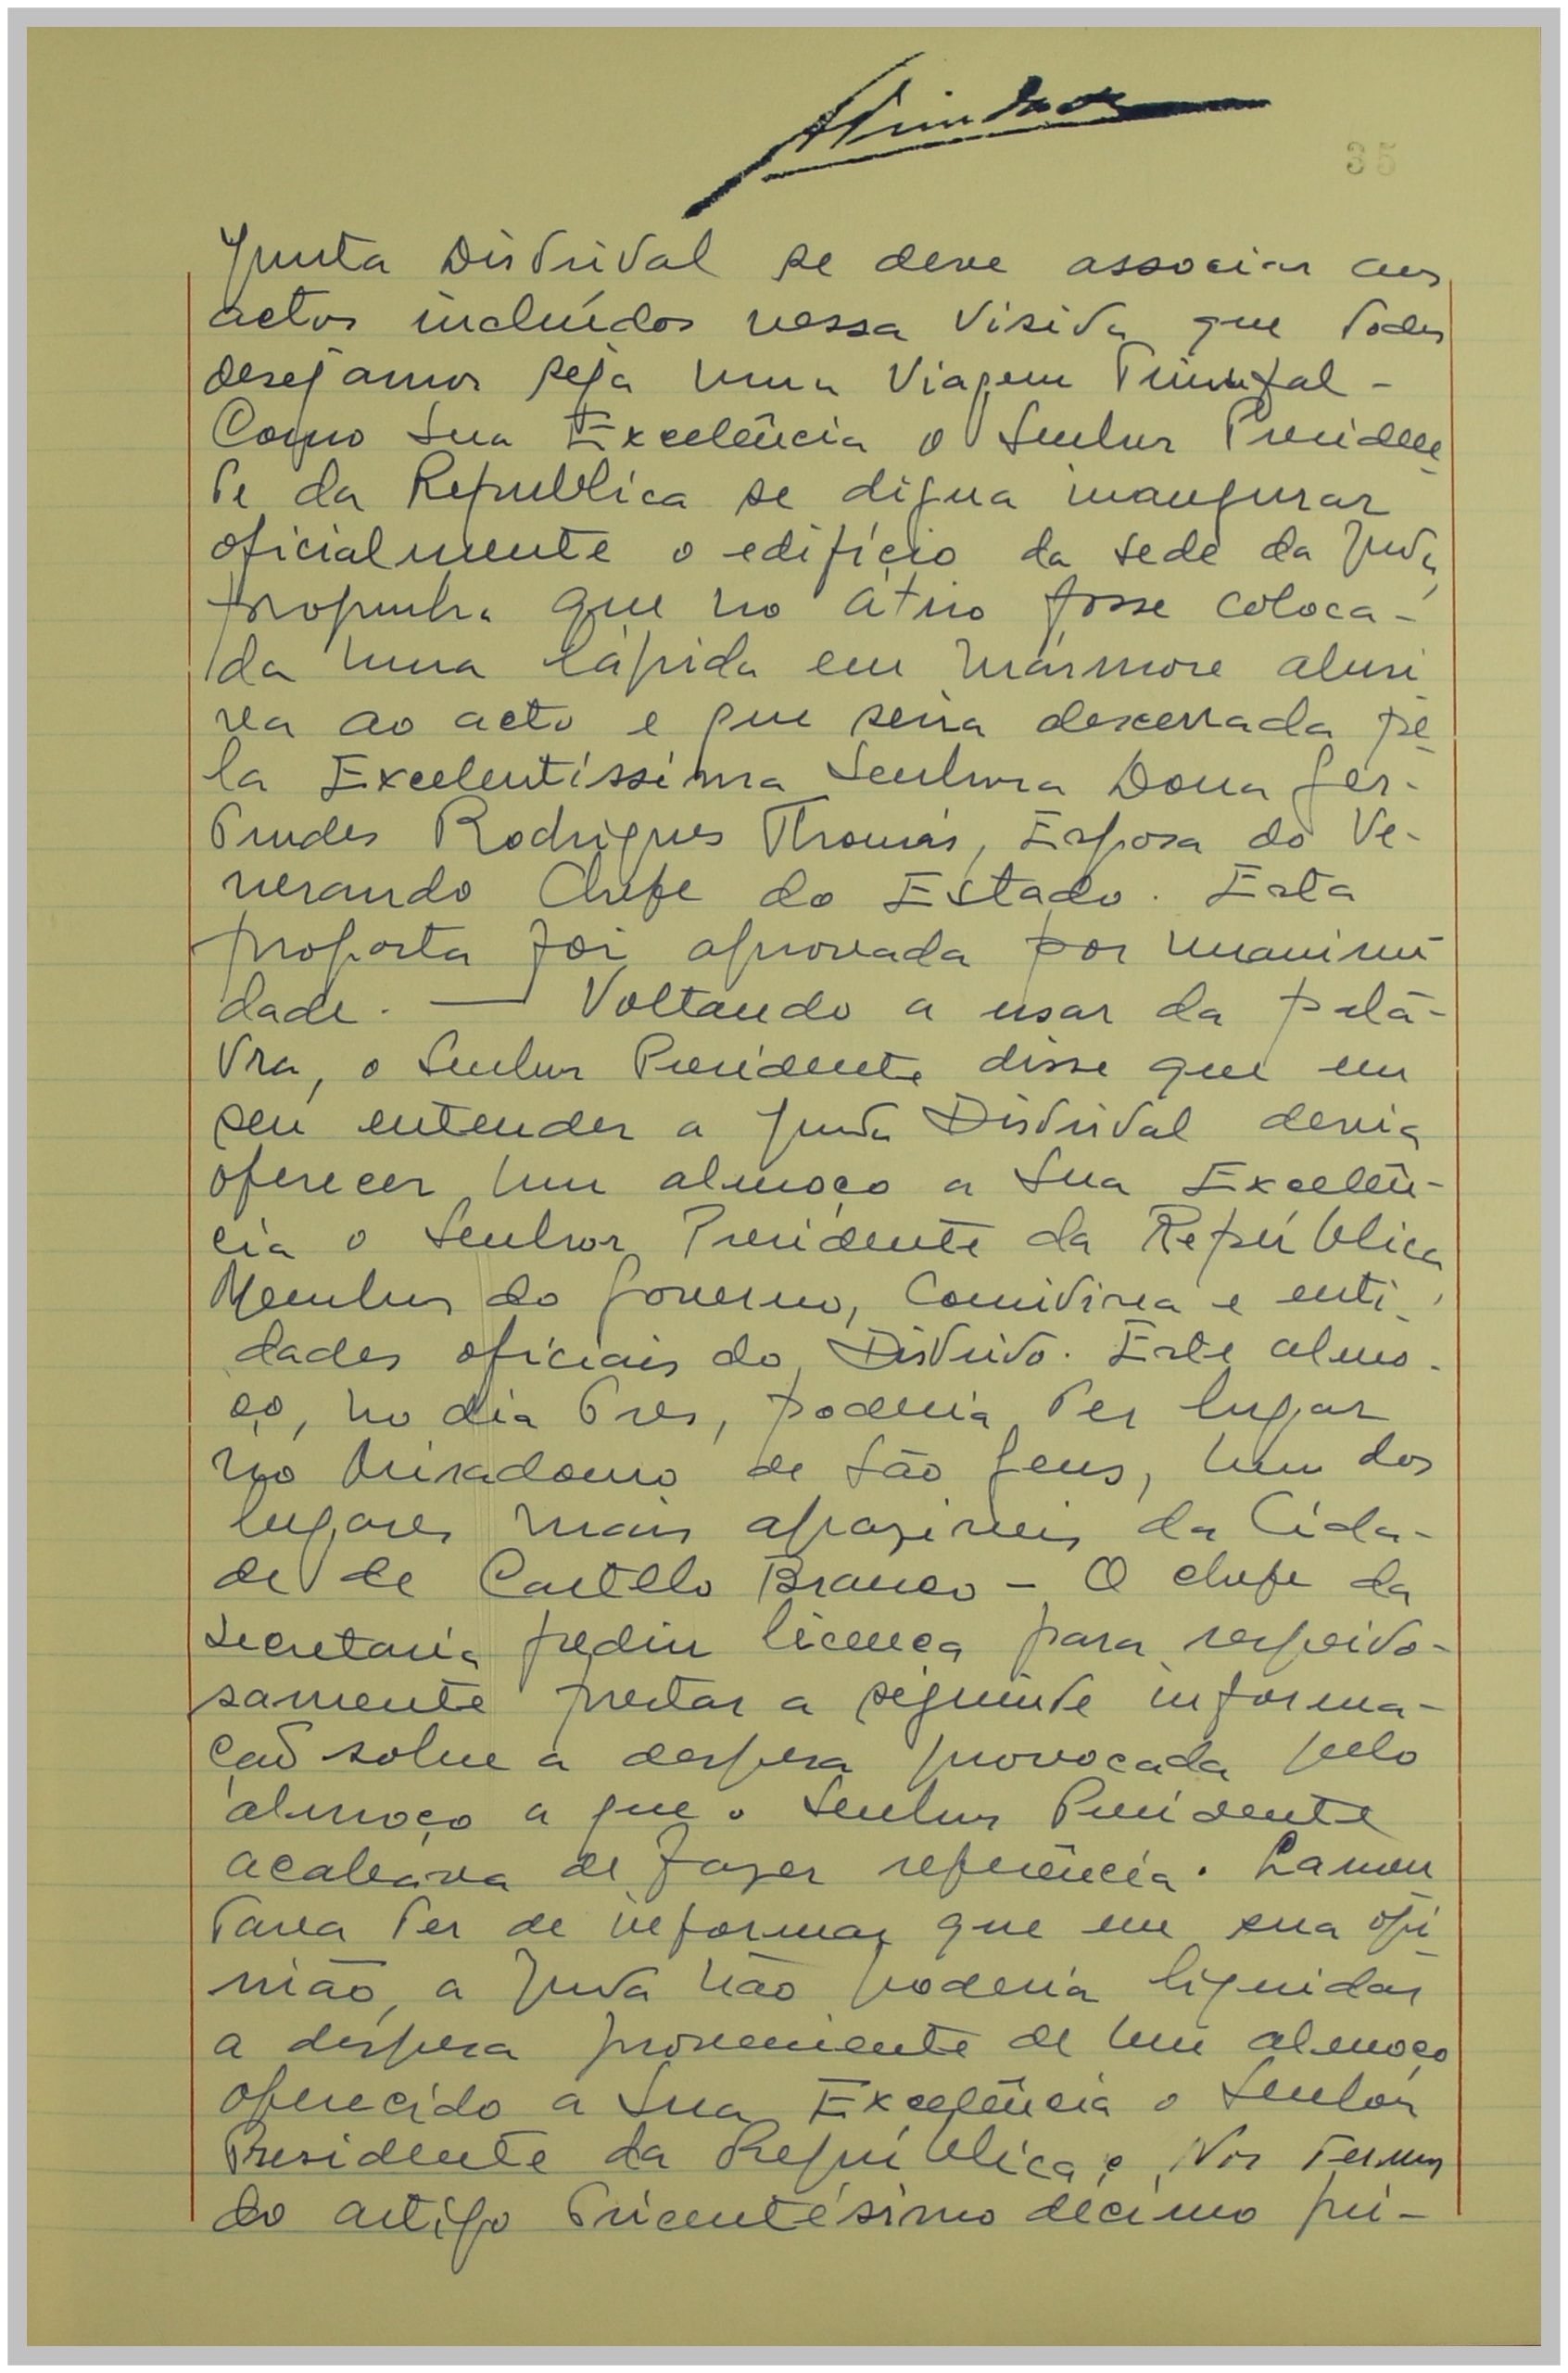 35
Junta Distrital se deve associar aos
actos incluídos nessa visita que todos
desejamos seja uma Viagem Triunfal -
Como Sua Excelência o Senhor Presiden-
te da Republica se digna inaugurar
oficialmente o edifício da sede da Junta,
propunha que no átrio fosse coloca-
da uma lápida em mármore alusi-
va ao acto e que seria descerrada pe-
la Excelentíssima Senhora Dona Ger-
trudes Rodrigues Thomás, Esposa do Ve-
nerando Chefe do Estado. Esta
proposta foi aprovada por unanimi-
dade. — Voltando a usar da palá-
vra, o Senhor Presidente disse que em
seu entender a Junta Distrital devia
oferecer um almoço a Sua Excelên-
cia o Senhor Presidente da República,
Membros do Governo, Comitiva e enti-
dades oficiais do Distrito. Este almo-
ço, no dia tres, poderia ter lugar
no Miradouro de São Gens, um dos
lugares mais apraziveis da Cida-
de de Castelo Branco - O chefe da
secretaria pediu licença para respeito-
samente prestar a seguinte informa-
ção sobre a despesa provocada pelo
almoço a que o Senhor Presidente
acabava de fazer referência. Lamen
tava ter de informar que em sua opi-
nião, a Junta não poderia liquidar
a despesa proveniente de um almoço
oferecido a Sua Excelência o Senhor
Presidente da República. Nos termos
do artigo tricentésimo décimo pri-